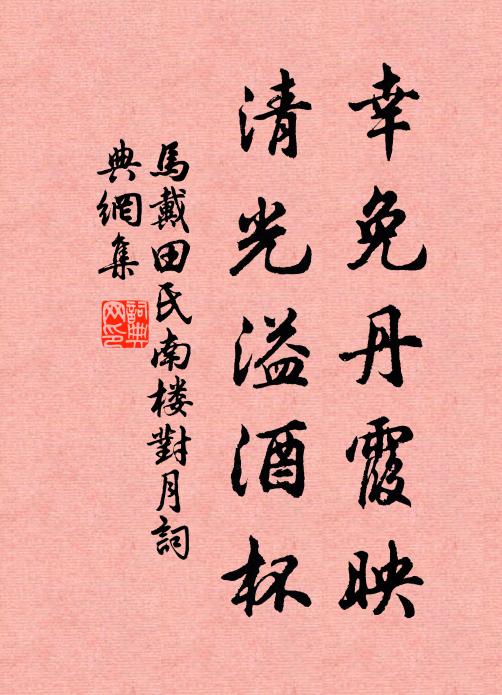 幸免丹霞映
清光溢酒杯
馬戴田氏南楼對月詞
典網集
詞典
网印